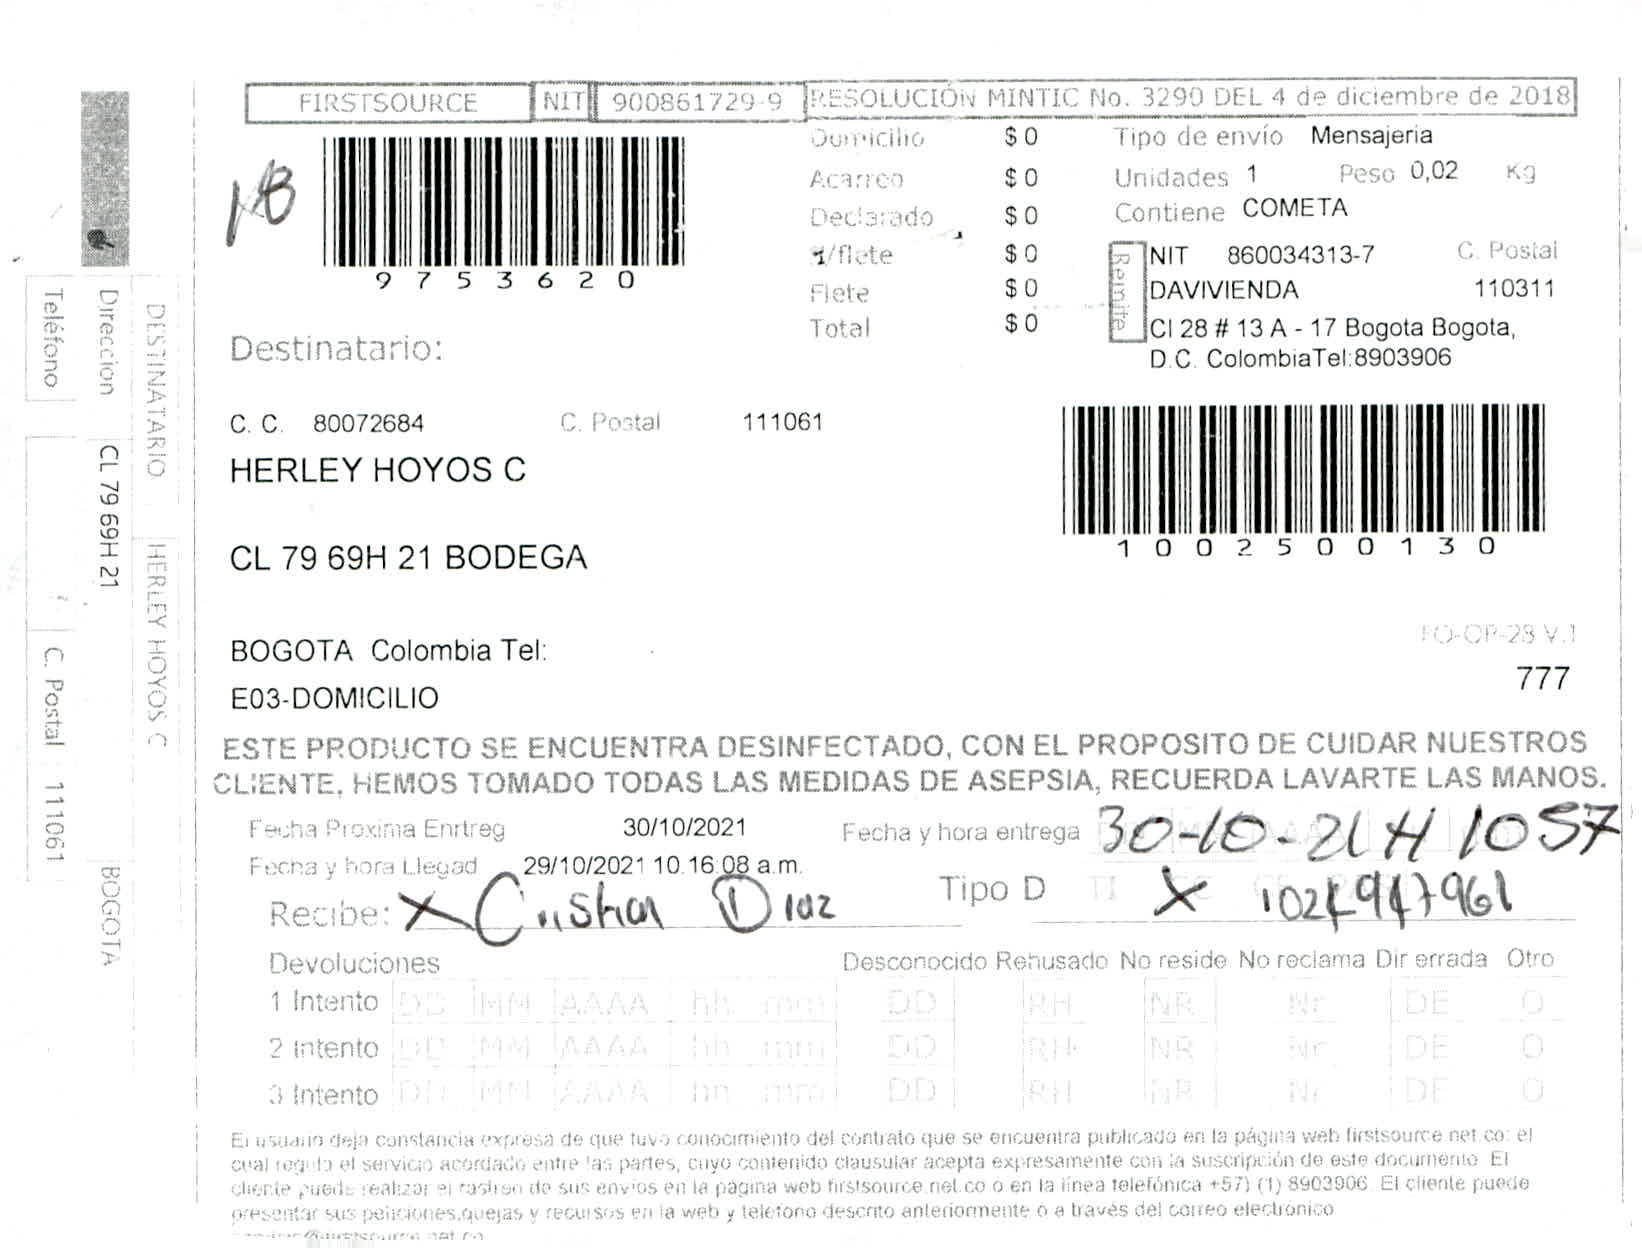 FIRSTSOURCE NIT 900861729-9 RESOLUCIÓN MINTIC No. 3290 DEL 4 de diciembre de 2018
9753620
Domicilio $ 0
Acarreo $ 0
Declarado $ 0
/flete $ 0
Flete $ 0
Total $ 0
Tipo de envío Mensajeria
Unidades 1 Peso 0,02 Kg
Contiene COMETA
Remite
NIT 860034313-7 C. Postal
DAVIVIENDA 110311
Cl 28 # 13 A - 17 Bogota Bogota,
D.C. ColombiaTel:8903906
Destinatario:
C. C. 80072684 C. Postal 111061
HERLEY HOYOS C
CL 79 69H 21 BODEGA
1002500130
BOGOTA Colombia Tel:
E03-DOMICILIO
FO-OP-28 V.1
777
ESTE PRODUCTO SE ENCUENTRA DESINFECTADO, CON EL PROPOSITO DE CUIDAR NUESTROS
CLIENTE, HEMOS TOMADO TODAS LAS MEDIDAS DE ASEPSIA, RECUERDA LAVARTE LAS MANOS.
Fecha Proxima Enrtreg 30/10/2021 Fecha y hora entrega 30-10-21 H 1057
Fecha y hora Llegad 29/10/2021 10.16:08 a.m.
Recibe: X Cristian Diaz Tipo D TI X 1024947961
Devoluciones Desconocido Rehusado No reside No reclama Dir errada Otro
1 Intento DD MM AAAA hh mm DD RH NR Nr DE O
2 Intento DD MM AAAA hh mm DD RH NR Nr DE O
3 Intento DD MM AAAA hh mm DD RH NR Nr DE O
El usuario deja constancia expresa de que tuvo conocimiento del contrato que se encuentra publicado en la página web firstsource.net.co: el
cual regula el servicio acordado entre las partes, cuyo contenido clausular acepta expresamente con la suscripción de este documento. El
cliente puede realizar el rastreo de sus envíos en la pagina web firstsource.net.co o en la línea telefónica +57) (1) 8903906. El cliente puede
presentar sus peticiones,quejas y recursos en la web y telefono descrito anteriormente o a través del correo electrónico
DESTINATARIO HERLEY HOYOS C
Direccion CL 79 69H 21 BOGOTA
Teléfono C. Postal 111061